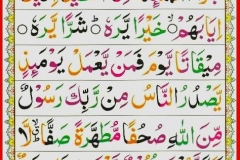 اِيَابَهُمْ ۙ خَيْرًا يَّرَهٗ ۙ شَرًّا يَّرَهٗ ۙ
مِيْقَاتًا يَّوْمَ فَمَنْ يَّعْمَلْ يَوْمَئِذٍ
يَّصْدُرُ النَّاسُ مِنْ رَّبِّكَ رَسُوْلٌ
مِّنَ اللّٰهِ صُحُفًا مُّطَهَّرَةً صَفًّا لَّا